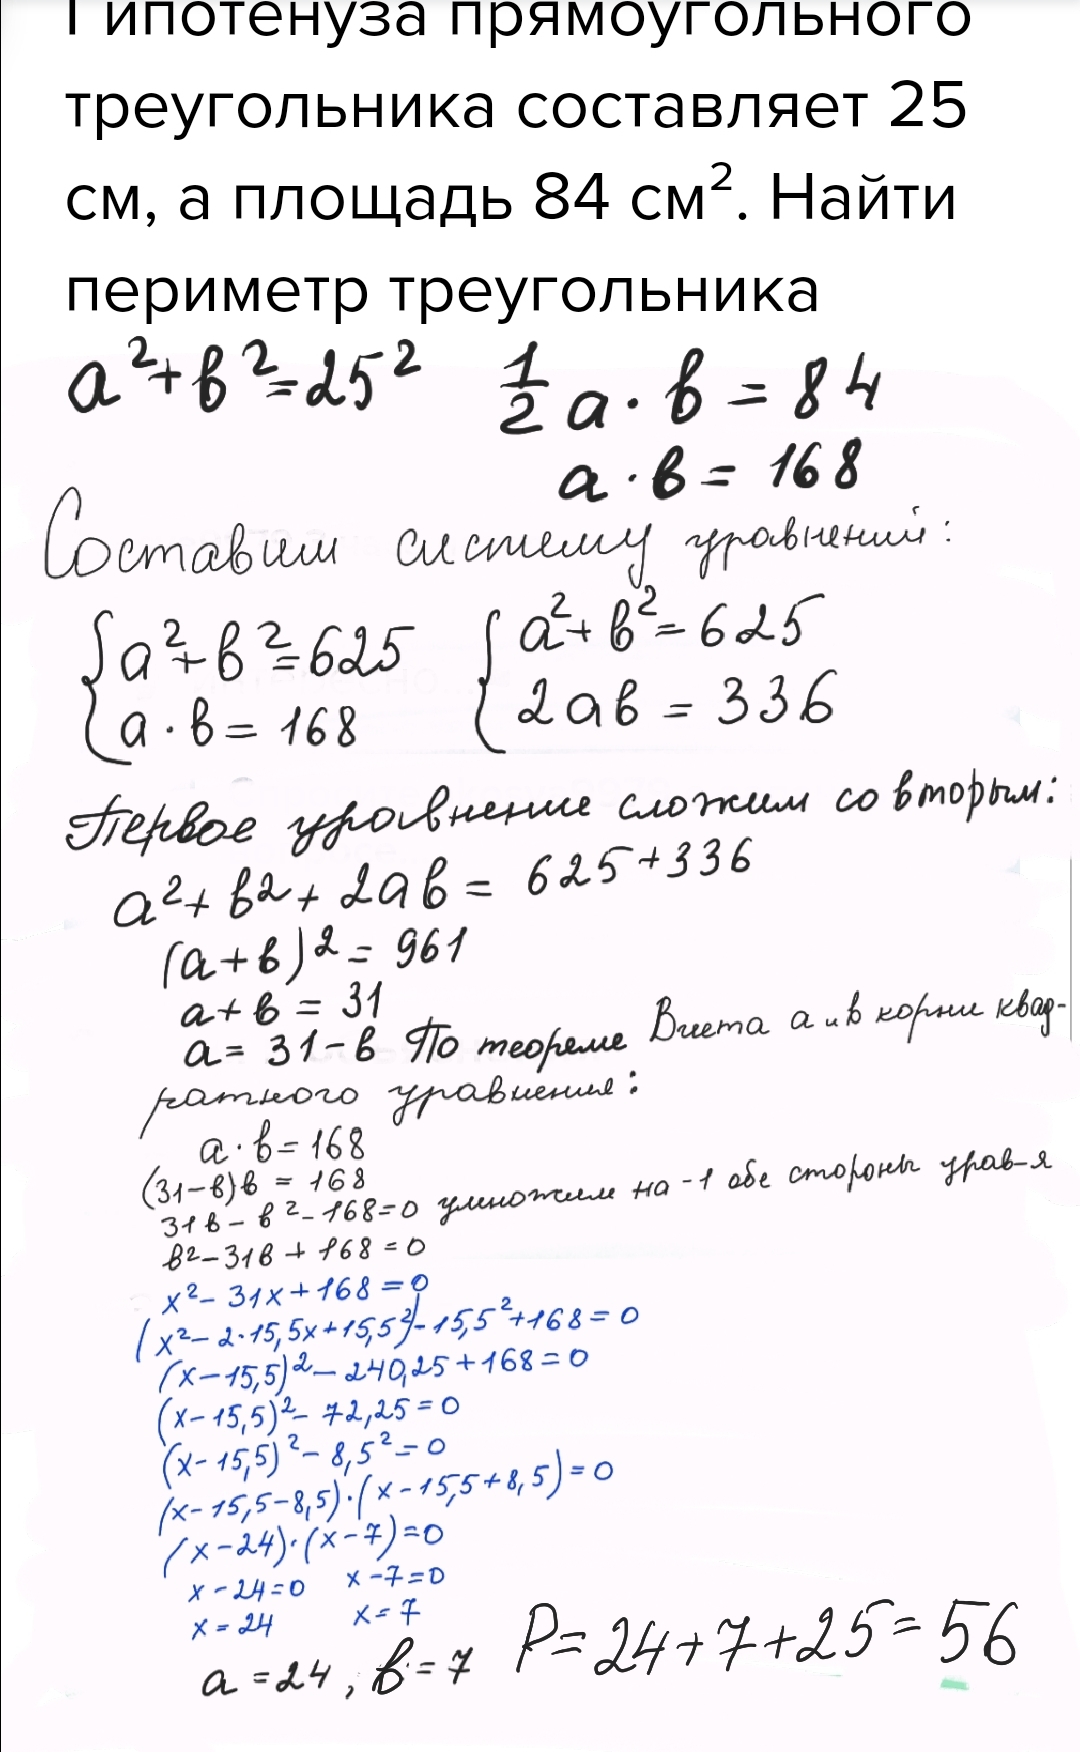 Гипотенуза прямоугольного
треугольника составляет 25
см, а площадь 84 см². Найти
периметр треугольника
a²+в²=25² ½ a·в = 84
a·в = 168
Составим систему уравнений:
{a²+в²=625 {a²+в²=625
{a·в = 168 {2aв = 336
Первое уравнение сложим со вторым:
a²+в²+2aв = 625+336
(a+в)² = 961
a+в = 31
a = 31-в По теореме Виета a и в корни квад-
ратного уравнения:
a·в = 168
(31-в)в = 168
31в-в²-168=0 умножим на -1 обе стороны урав-я
в²-31в+168=0
x²-31x+168=0
(x²-2·15,5x+15,5²)-15,5²+168=0
(x-15,5)²-240,25+168=0
(x-15,5)²-72,25=0
(x-15,5)²-8,5²=0
(x-15,5-8,5)·(x-15,5+8,5)=0
(x-24)·(x-7)=0
x-24=0 x-7=0
x=24 x=7
a=24, в=7 P=24+7+25=56